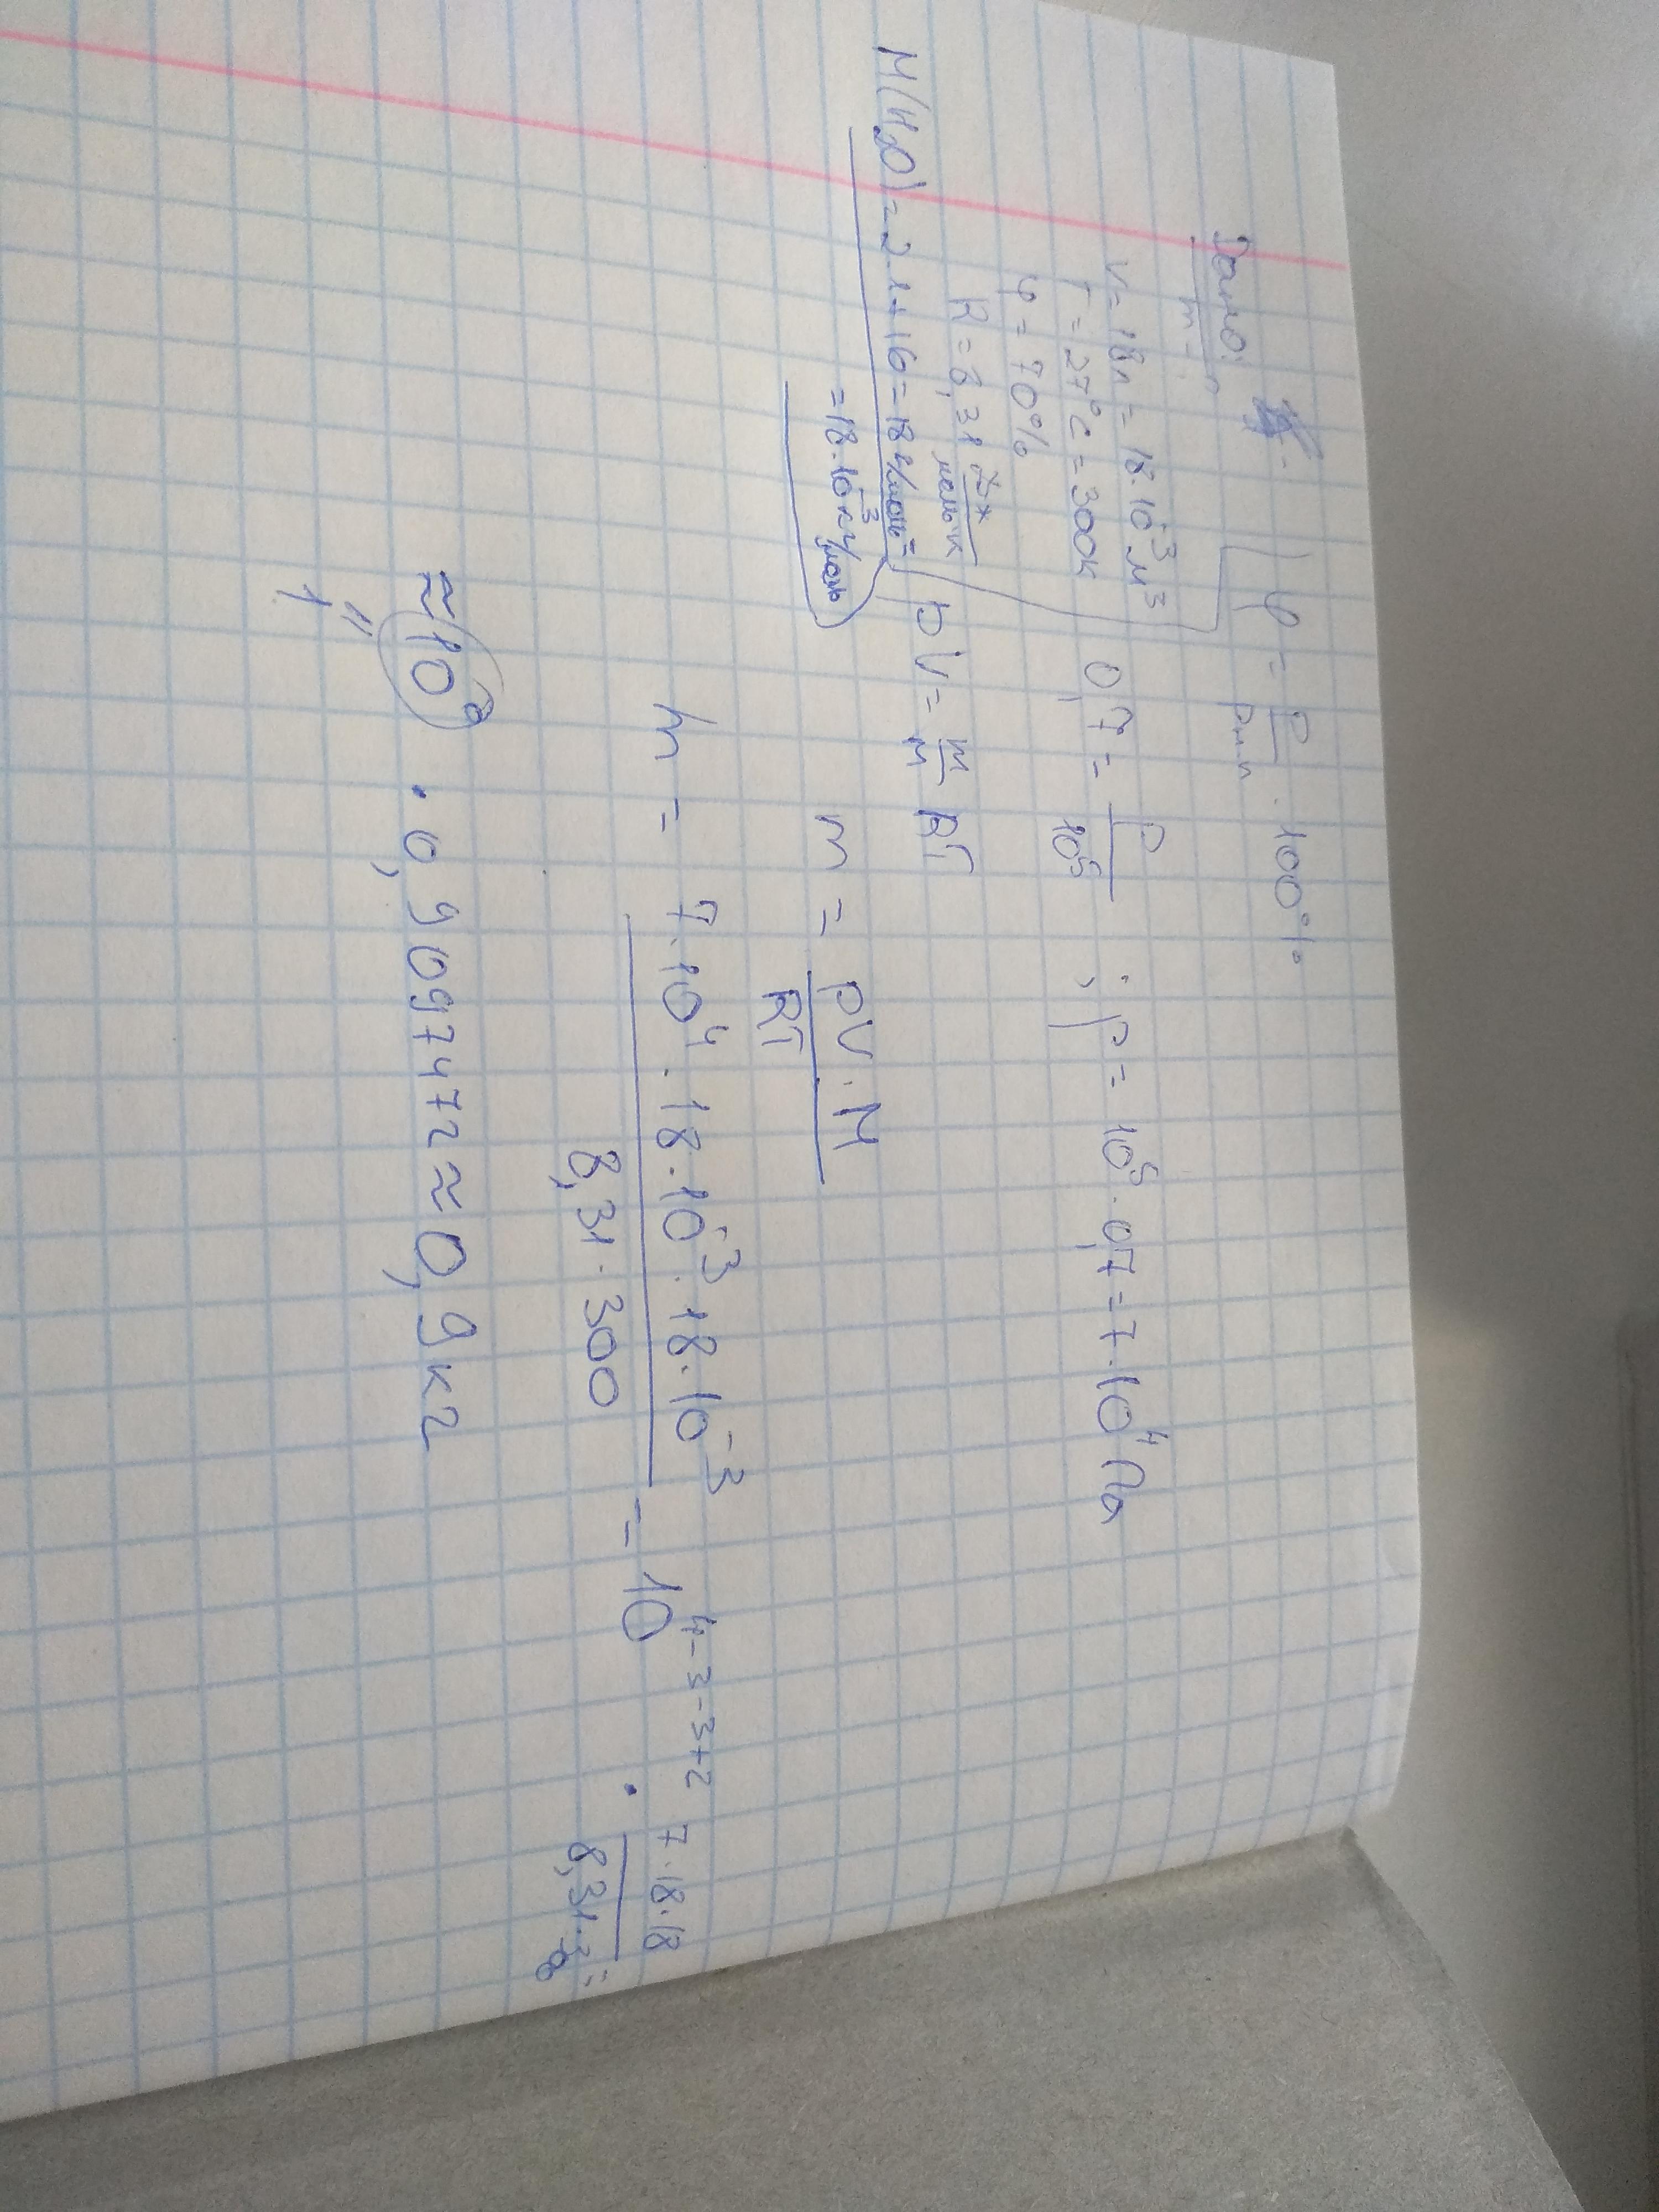 Дано:
m - ?
V = 18л = 18·10⁻³ м³
T = 27°C = 300К
φ = 70%
R = 8,31 Дж/моль·К
M(H₂O) = 2·1+16 = 18 г/моль =
= 18·10⁻³ кг/моль
φ = P/Pн.п · 100%
0,7 = P/10⁵ ; p = 10⁵ · 0,7 = 7·10⁴ Па
pV = m/M RT
m = pV·M/RT
m = 7·10⁴ · 18·10⁻³ · 18·10⁻³/8,31·300 = 10⁴⁻³⁻³⁺² · 7·18·18/8,31·3 =
≈ 10⁰ · 0,9097472 ≈ 0,9 кг
"
1